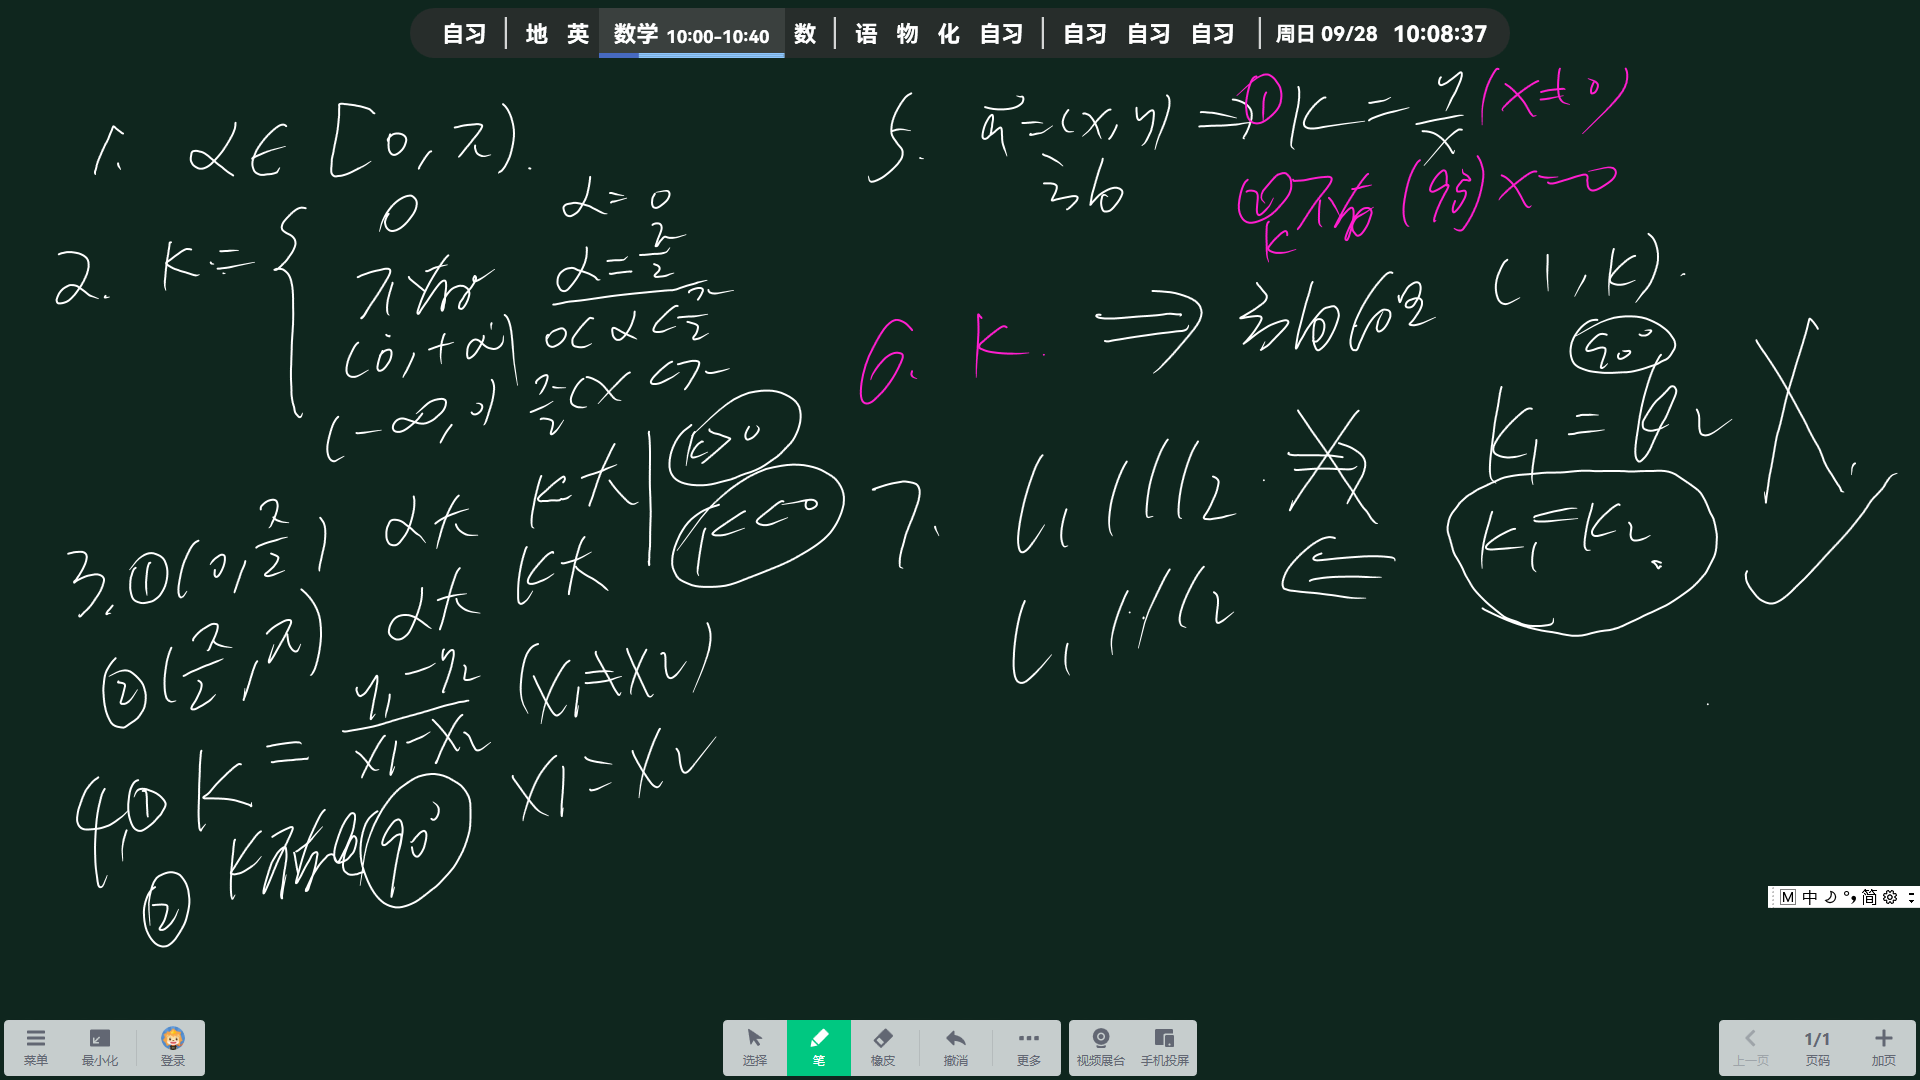 自习 | 地 英 数学 10:00-10:40 数 | 语 物 化 自习 | 自习 自习 自习 | 周日 09/28 10:08:37
1. α∈[0,π).
2. K= {
0 α=0
不存在 α=π/2
(0,+∞) 0<α<π/2
(-∞,0) π/2<α<π
3. ①(0,π/2) α大 K大 | K>0
②(π/2,π) α大 K大 | K<0
4. ① K=(y₁-y₂)/(x₁-x₂) (x₁≠x₂)
② K不存在 90° x₁=x₂
5. a⃗=(x,y) ⇒ ① K=y/x (x≠0)
方向
② K不存在 (90°) x=0
6. K. ⇒ 方向向量 (1,K).
90°
7. l₁∥l₂ ⇒ K₁=K₂ ×
l₁∥l₂ ⇐ K₁=K₂. ✓
M 中 简
菜单 最小化 登录 选择 笔 橡皮 撤消 更多 视频展台 手机投屏 上一页 1/1 页码 加页